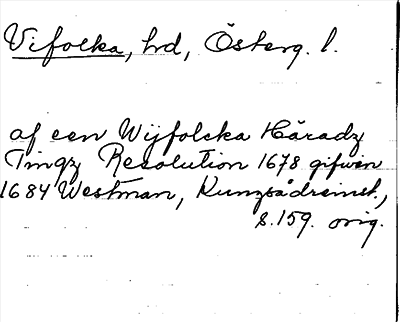 Vifolka, hrd, Österg. l.
af een Wijfolcka Häradz
Tingz Resolution 1678 gifwin
1684 Westman, Kunzsådreinst.,
s. 159. orig.